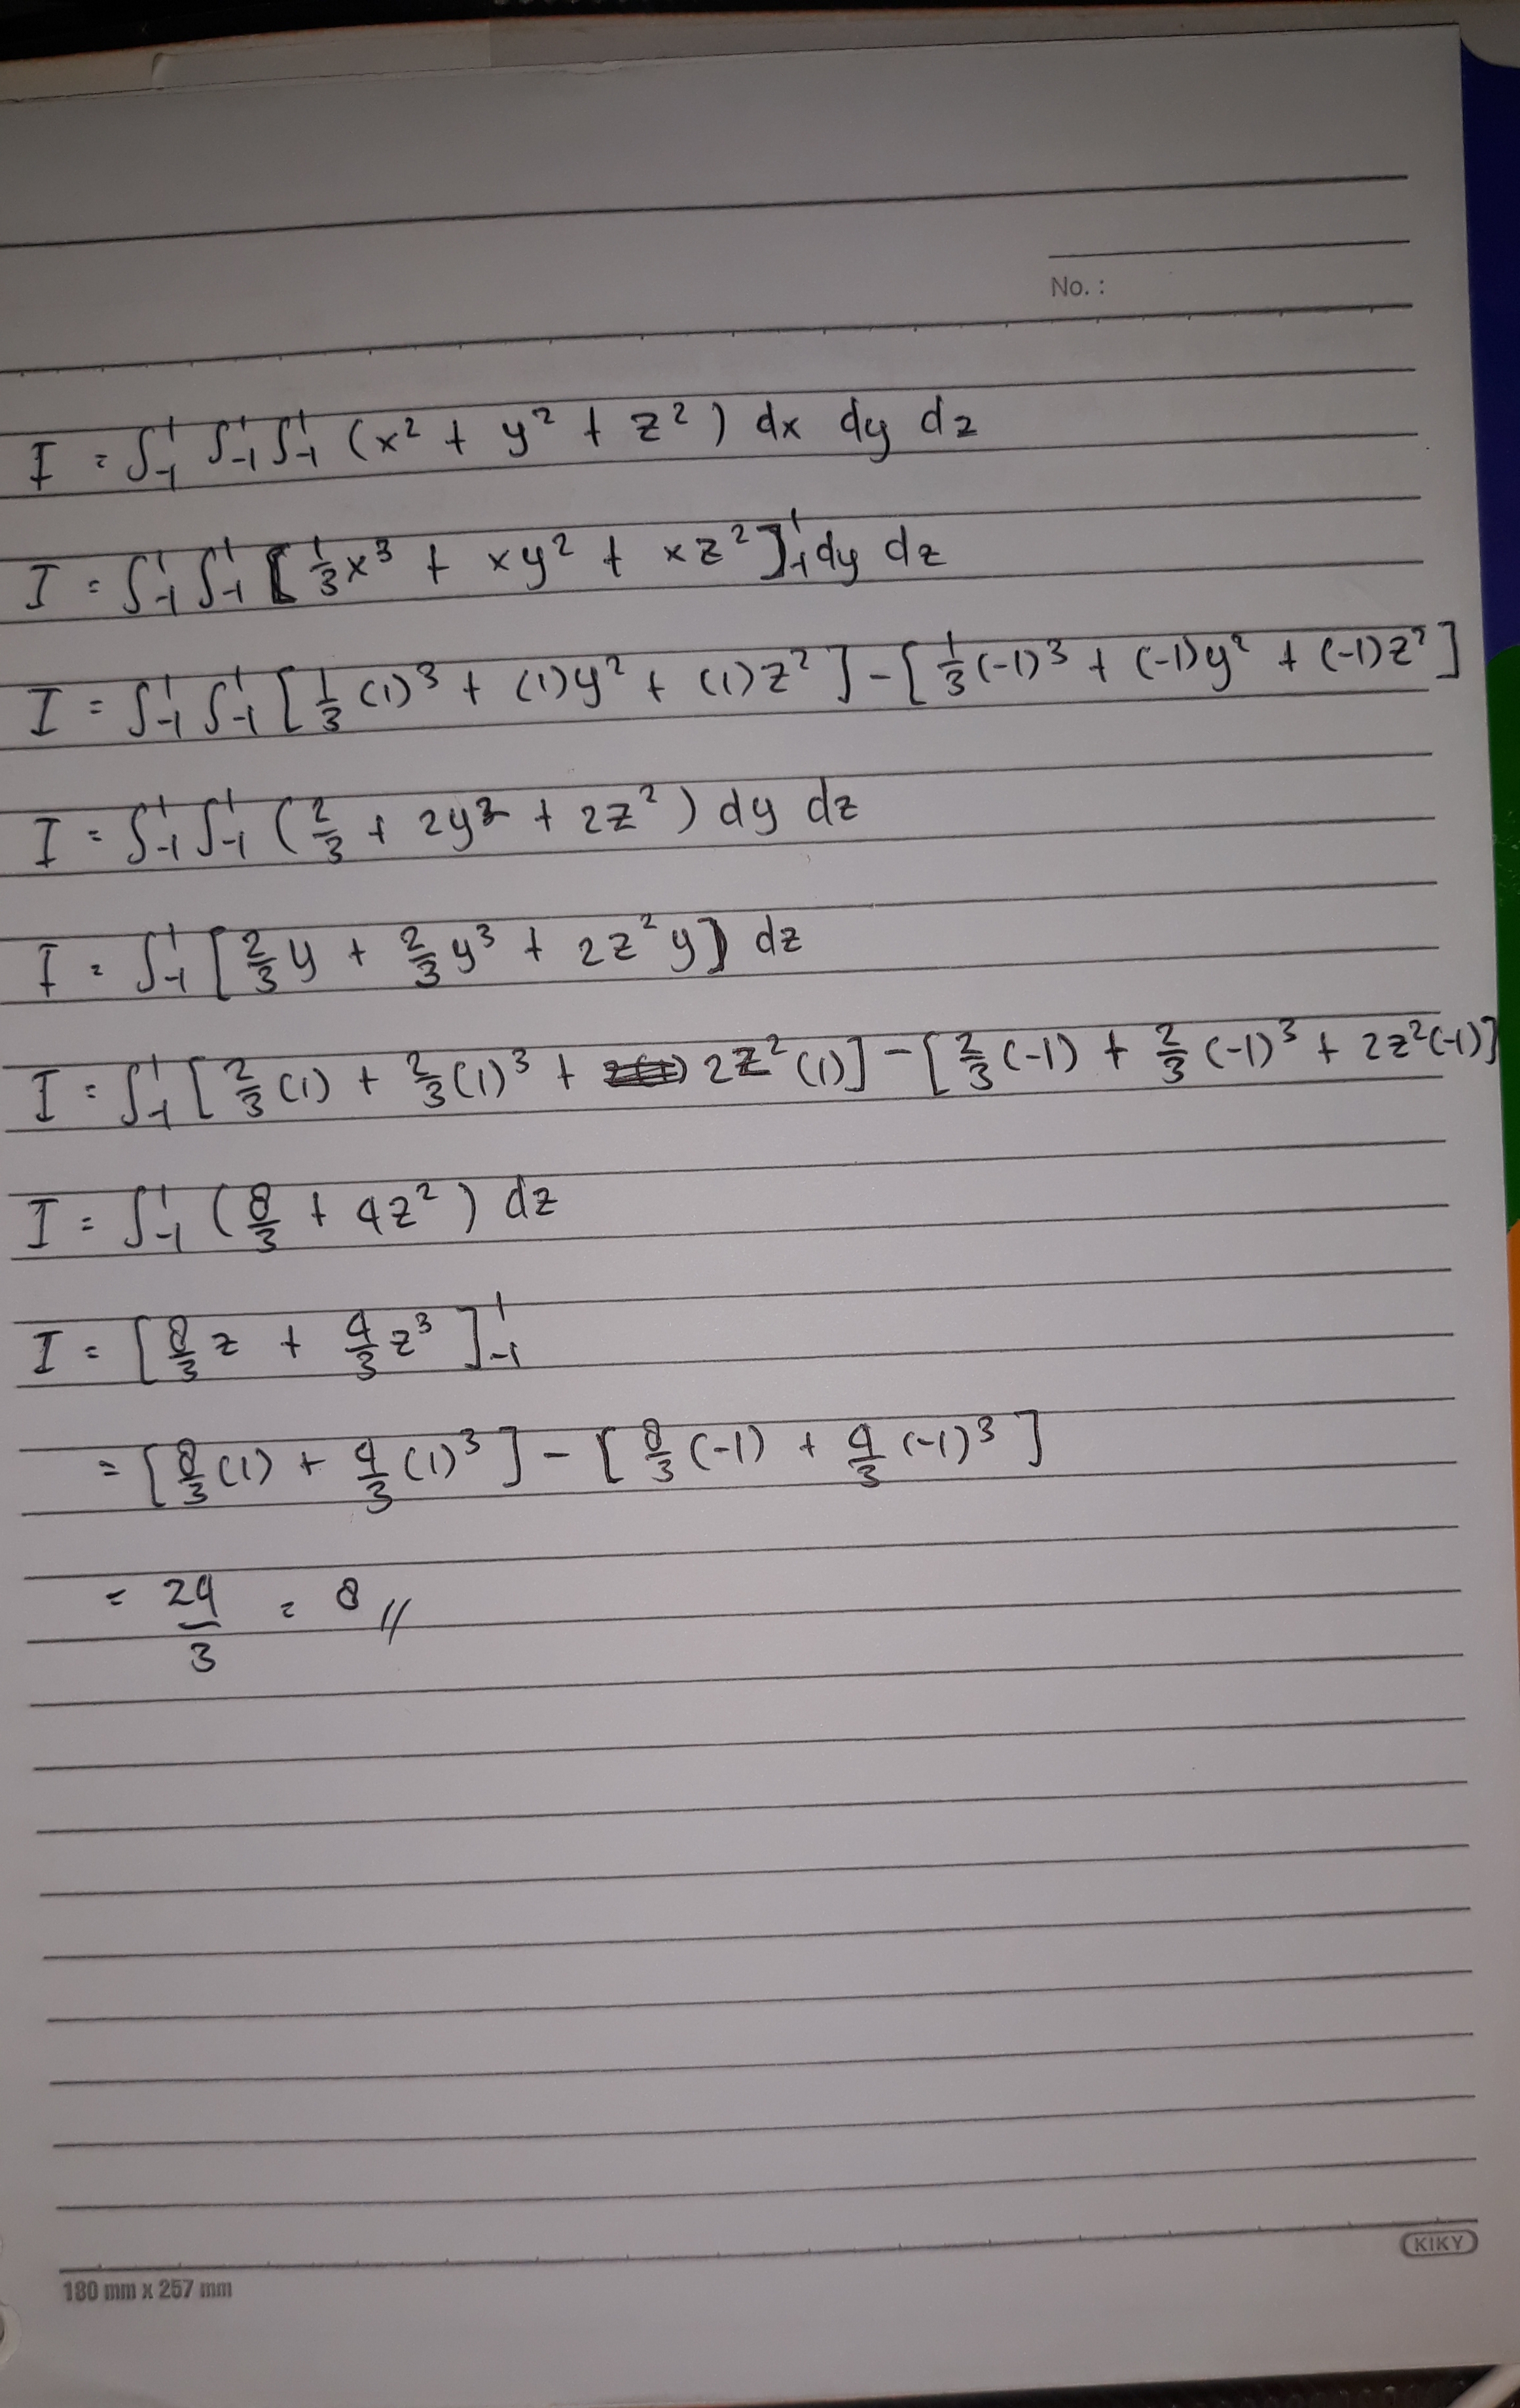 No. :
I = ∫₋₁¹ ∫₋₁¹ ∫₋₁¹ (x² + y² + z²) dx dy dz
I = ∫₋₁¹ ∫₋₁¹ [1/3 x³ + xy² + xz²]₋₁¹ dy dz
I = ∫₋₁¹ ∫₋₁¹ [1/3 (1)³ + (1)y² + (1)z²] - [1/3 (-1)³ + (-1)y² + (-1)z²]
I = ∫₋₁¹ ∫₋₁¹ (2/3 + 2y² + 2z²) dy dz
I = ∫₋₁¹ [2/3 y + 2/3 y³ + 2z²y] dz
I = ∫₋₁¹ [2/3 (1) + 2/3 (1)³ + 2z²(1)] - [2/3 (-1) + 2/3 (-1)³ + 2z²(-1)]
I = ∫₋₁¹ (8/3 + 4z²) dz
I = [8/3 z + 4/3 z³]₋₁¹
= [8/3 (1) + 4/3 (1)³] - [8/3 (-1) + 4/3 (-1)³]
= 24/3 = 8 //
KIKY
180 mm x 257 mm